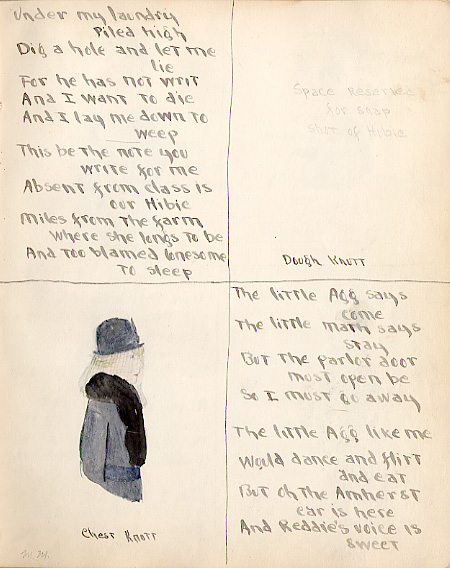 Under my laundry
Piled high
Dig a hole and let me
lie
For he has not writ
And I want to die
And I lay me down to
weep
This be the note you
write for me
Absent from class is
our Hibie
Miles from the farm
Where she longs to be
And too blamed lonesome
To sleep
Space Reserved
for snap
shot of Hibie
Dough Knutt
Chest Knott
M.M.
The little Agg says
come
The little math says
stay
But the parlor door
must open be
So I must go away
The little Agg like me
Would dance and flirt
and eat
But oh the Amherst
car is here
And Reddie's voice is
sweet